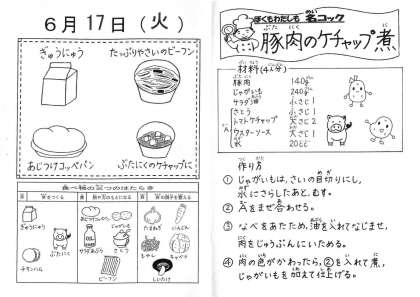 6月17日(火)
ぎゅうにゅう
たっぷりやさいのビーフン
あじつけコッペパン
ぶたにくのケチャップに
食べ物の三つのはたらき
ぎゅうにゅう
ぶたにく
チキンハム
じゃがいも
サラダあぶら
さとう
ビーフン
たまねぎ
にんじん
もやし
キャベツ
しいたけ
ぼくもわたしも 名コック
豚肉のケチャップ煮
材料(4人分)
豚肉 140g
じゃがいも 240g
サラダ油 小さじ1
さとう 小さじ1
トマトケチャップ 大さじ2
ウスターソース 大さじ1
水 20cc
A
作り方
① じゃがいもは、さいの目切りにし、
水にさらしたあと、むす。
② Aをまぜ合わせる。
③ なべをあたため、油を入れてなじませ、
肉をじゅうぶんにいためる。
④ 肉の色がかわったら、②を入れて煮、
じゃがいもを加えて仕上げる。